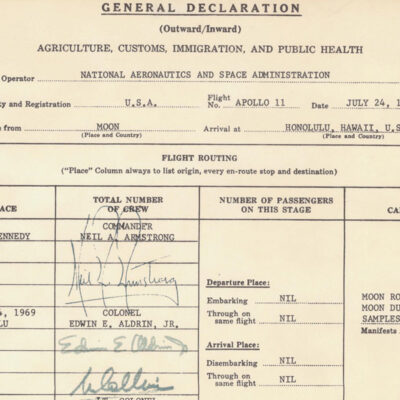 GENERAL DECLARATION
(Outward/Inward)
AGRICULTURE, CUSTOMS, IMMIGRATION, AND PUBLIC HEALTH
Operator NATIONAL AERONAUTICS AND SPACE ADMINISTRATION
ty and Registration U.S.A. Flight No. APOLLO 11 Date JULY 24, 1
e from MOON Arrival at HONOLULU, HAWAII, U.S
(Place and Country) (Place and Country)
FLIGHT ROUTING
("Place" Column always to list origin, every en-route stop and destination)
ACE TOTAL NUMBER OF CREW NUMBER OF PASSENGERS ON THIS STAGE CA
COMMANDER
ENNEDY NEIL A. ARMSTRONG
Neil A. Armstrong
Departure Place:
Embarking NIL MOON RO
MOON DU
4, 1969 COLONEL Through on SAMPLES
LU EDWIN E. ALDRIN, JR. same flight NIL Manifests
Edwin E. Aldrin Jr
Arrival Place:
Disembarking NIL
M Collins
Through on
same flight NIL
LT. COLONEL